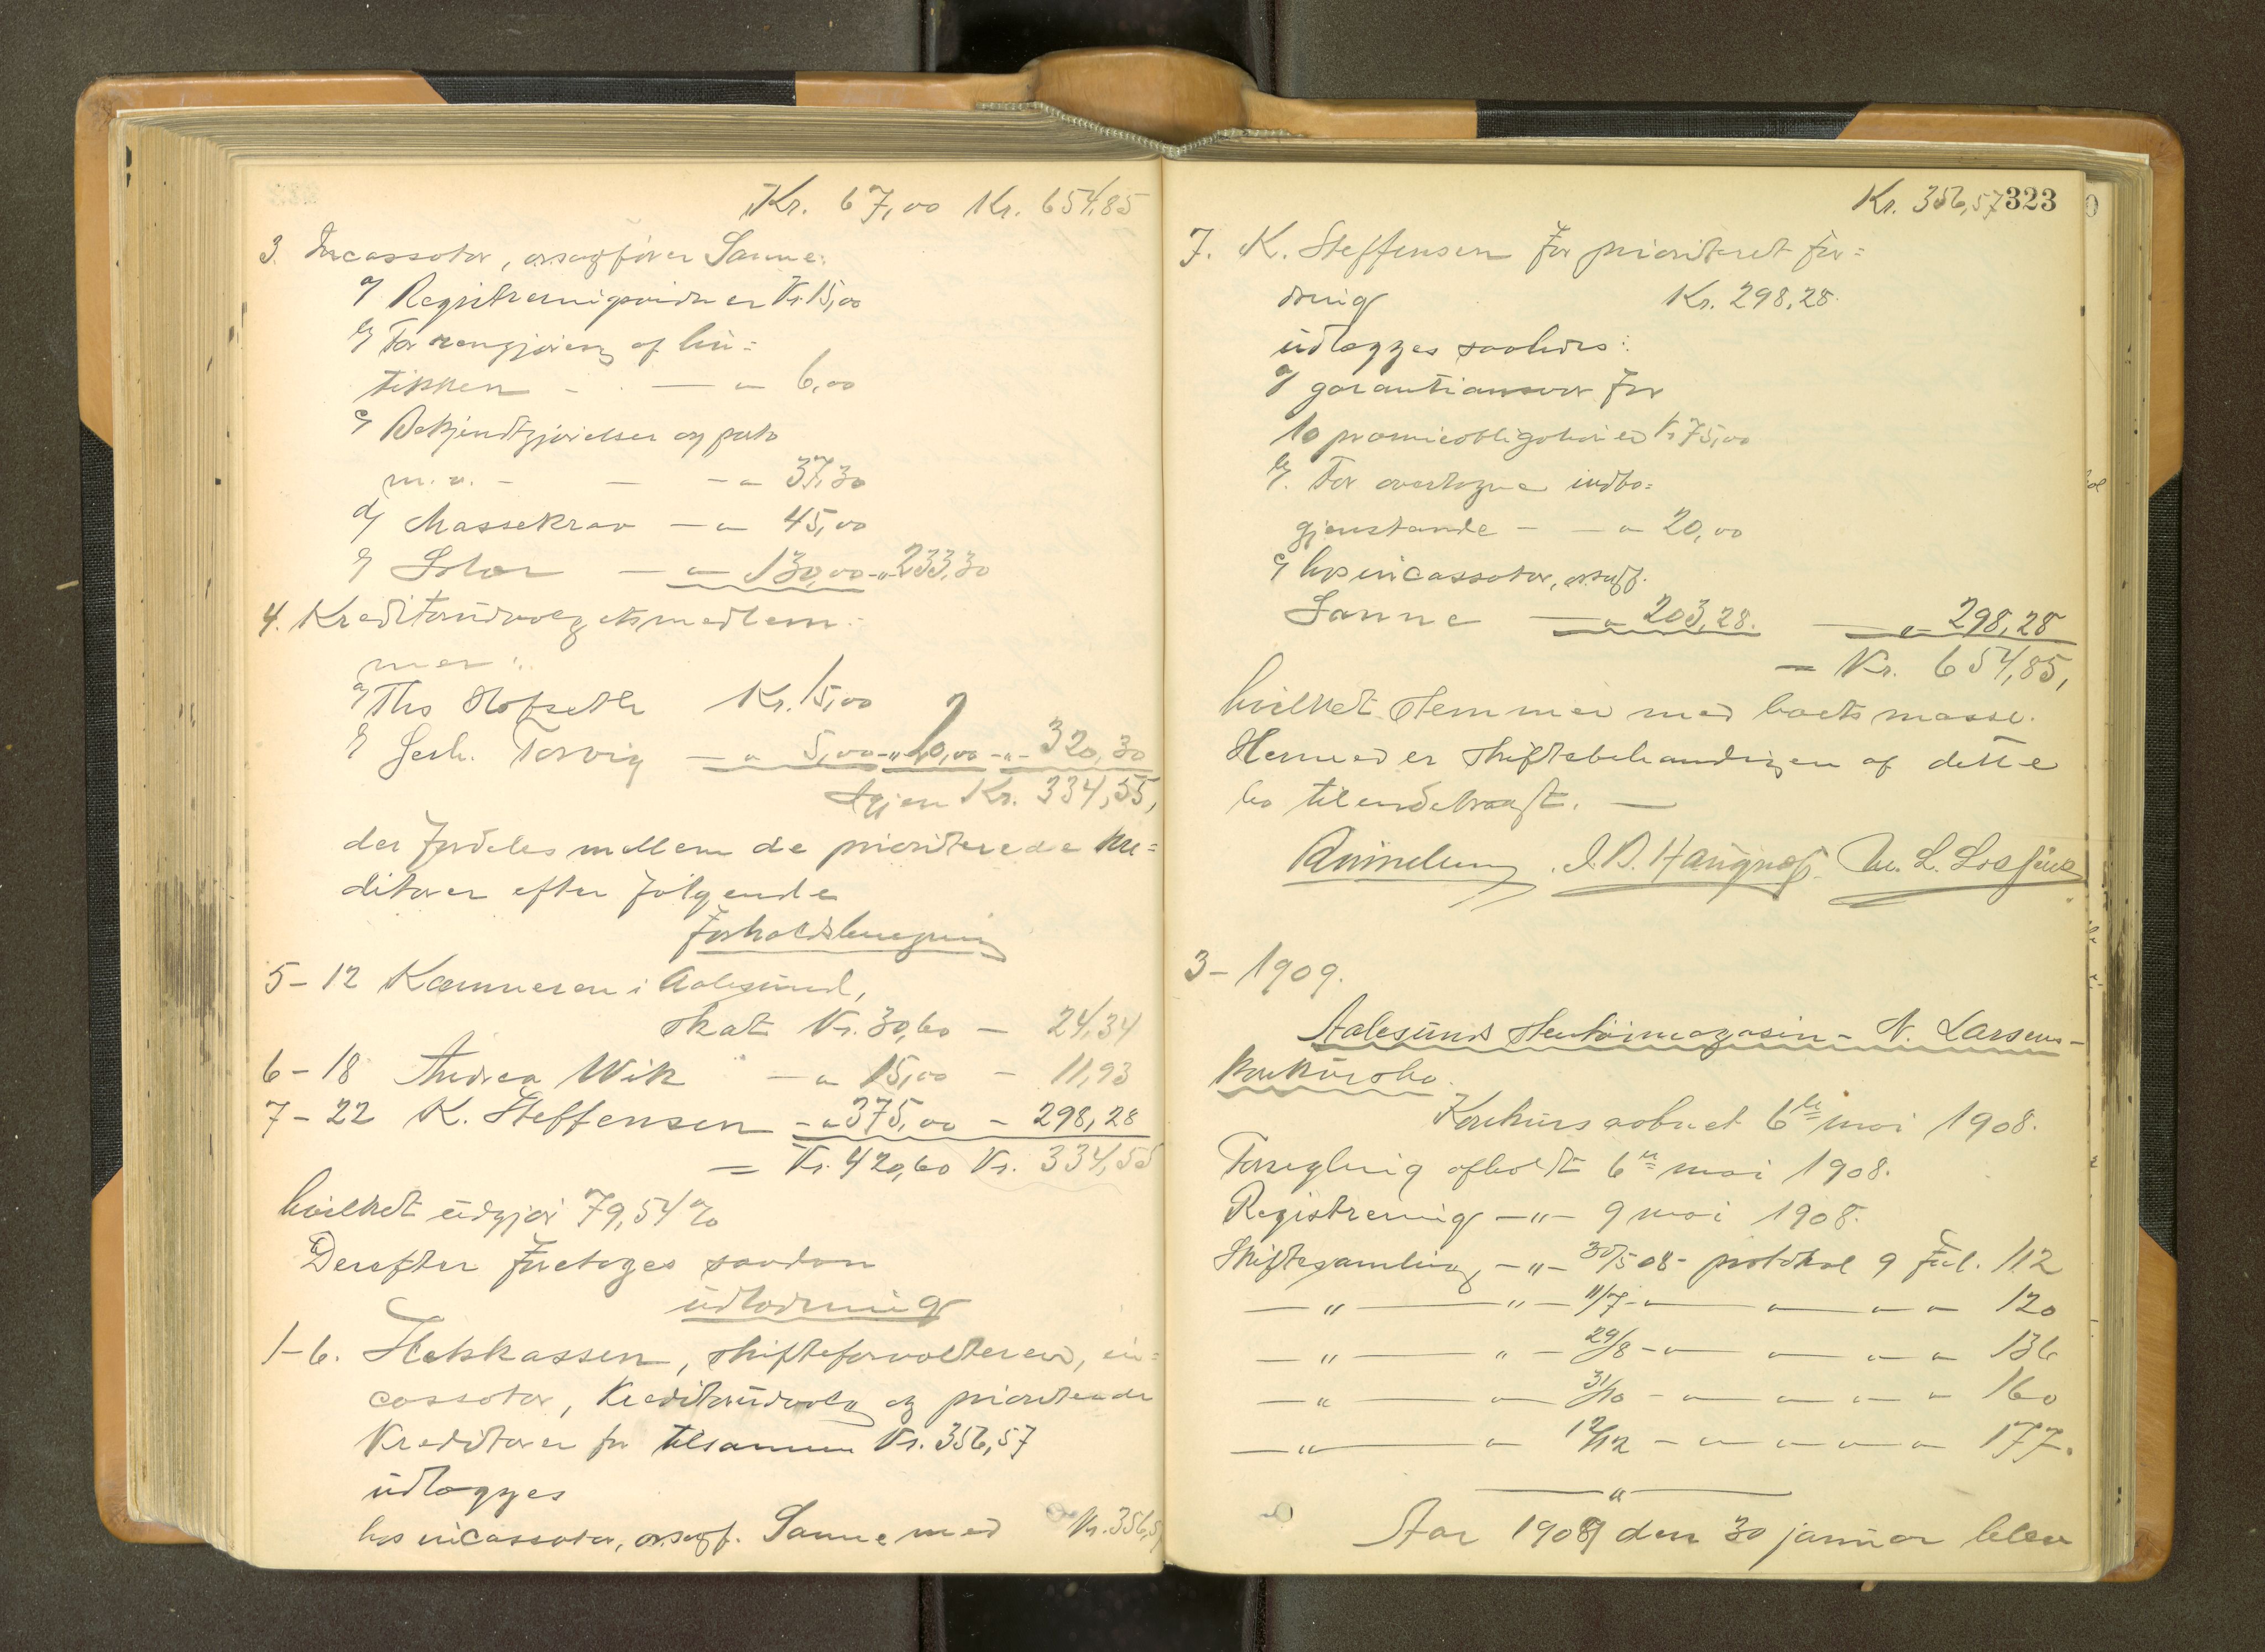 Kr. 67,00 Kr. 654,85
3. Incassator, orsagfører Sanne:
a/ Registreringsvidner Kr. 15,00
b/ For rengjøring af bu=
tikken - - — " 6,00
c/ Bekjendtgjørelser og porto
m. v. - — - " 37,30
d/ Massekrav — " 45,00
e/ Salær — " 130,00 - " 233,30
4. Kreditorudvalgetsmedlem=
mer:
a/ Ths Hofseth Kr. 15,00
b/ Gerh. Torvig — " 5,00 - " 20,00 - " - 320,30
Igjen Kr. 334,55,
der fordeles mellem de prioriterede kre=
ditorer efter følgende
forholdsberegning
5-12 Kæmneren i Aalesund,
skat Kr. 30,60 — 24,34
6-18 Andrea Wik — " 15,00 - 11,93
7-22 K. Steffensen - " 375,00 - 298,28
= Kr. 420,60 Kr. 334,55
hvilket udgjør 79,54 %
Derefter foretoges saadan
udlodning
1-6. Statskassen, skifteforvalteren, in=
cassator, kreditorudvalg og prioriterede
kreditorer for tilsammen Kr. 356,57
udlægges
hos incassator, orsagf. Sanne med Kr. 356,57
Kr. 356,57 323
7. K. Steffensen for prioriteret for=
dring Kr. 298,28.
udlægges saaledes:
a/ garantiansvar for
10 præmieobligationer Kr. 75,00
b/. For overtagne indbo=
gjenstande - — " 20,00
c/ hos incassator, orsagf.
Sanne — " 203,28. — " 298,28
= Kr. 654,85,
hvilket stemmer med boets masse.
Hermed er skiftebehandlingen af dette
bo tilendebragt. —
J. D. Haugnæs. M. L. Losjius
3-1909.
Aalesunds Stentøimagasin - N. Larsens-
konkursbo.
Konkurs aabnet 6te mai 1908.
Forsegling afholdt 6te mai 1908.
Registrering — " — 9 mai 1908.
Skiftesamling — " — 30/5 08 - protokol 9 fol. 112
— " — " — 11/7 - " — " — " — " — 120
— " — " — 29/8 - " — " — " — " — 136
— " — " 31/10 - " — " — " — " — 160
— " — " 12/12 - " — " — " — " — 177.
— " —
Aar 1909 den 30 januar blev